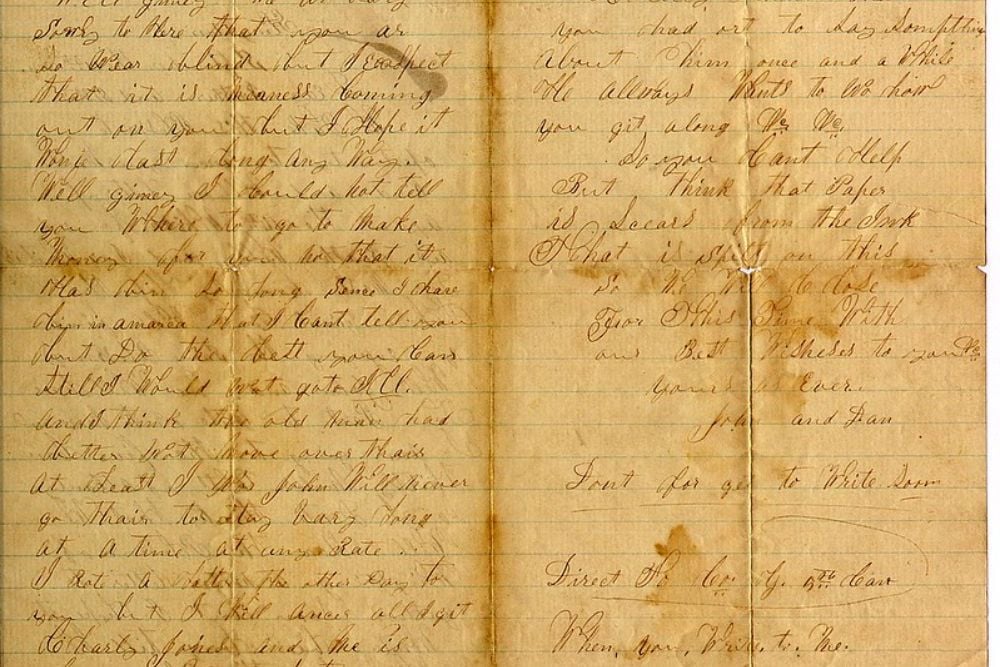 Sorry to Here that you ar
So Near blind but I exspect
that it is meaness Coming
out on you but I Hope it
Wont Last Long Any Way.
Well gimey I Could not tell
you Whire to go to Make
Money for you no that it
Has bin So Long Sence I have
bin in amarica that I Cant tell you
but Do the best you Can
Still I Would not go to
And I think the old man had
better Not Move over thair
At Least I John Will Never
go thair to Stay vary Long
At A time at any Rate
I Rote A Letter the other Day to
you but I Will ancer all I git
Charly Jones and he is
you had ort to Say Sompthing
About him once and a While
He allways Wants to no how
you git along &c &c.
Do you Cant Help
But think that Paper
is Scears from the Ink
That is Spilt on this
So We Will Close
For This Time With
our Best Wisheses to you &c
yours as Ever.
John and Dan
Dont for get to Write Soon
Direct To Co. G. 5th Cav
When you Write to Me.